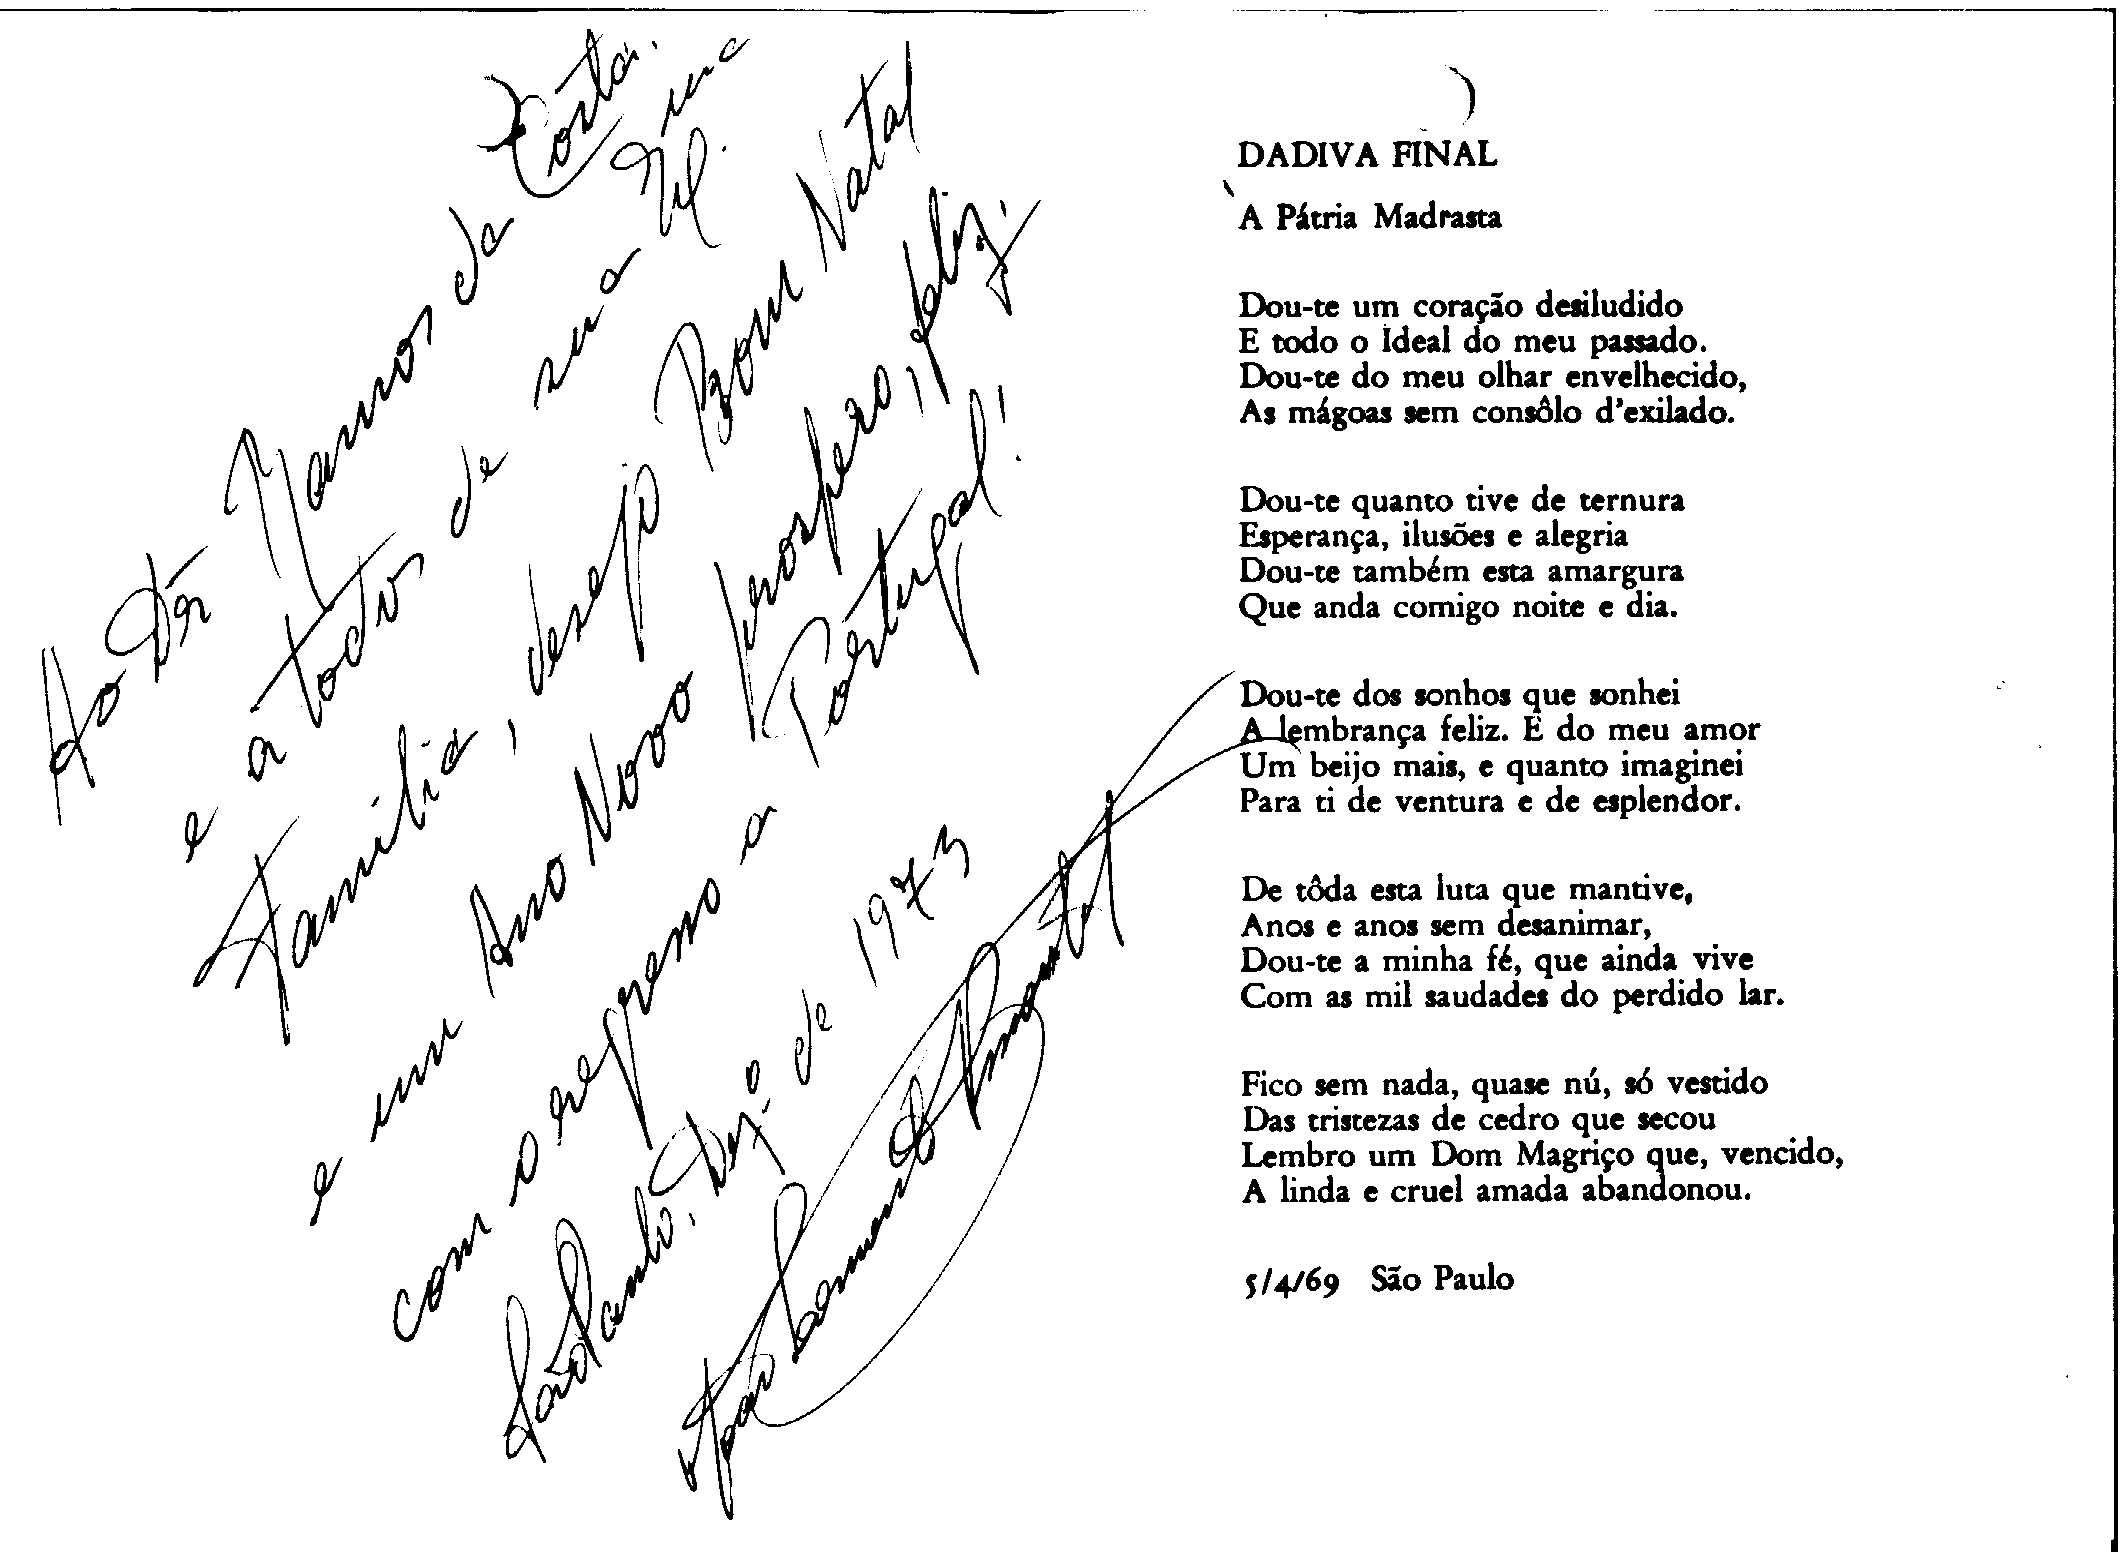 Ao Dr. Ramos da Costa.
e a todos de sua
Família, desejo Bom Natal
e um Ano Novo prospero, feliz,
com o regresso a Portugal!
São Paulo, Dez.o de 1973
DADIVA FINAL
A Pátria Madrasta
Dou-te um coração desiludido
E todo o Ideal do meu passado.
Dou-te do meu olhar envelhecido,
As mágoas sem consôlo d'exilado.
Dou-te quanto tive de ternura
Esperança, ilusões e alegria
Dou-te também esta amargura
Que anda comigo noite e dia.
Dou-te dos sonhos que sonhei
A lembrança feliz. E do meu amor
Um beijo mais, e quanto imaginei
Para ti de ventura e de esplendor.
De tôda esta luta que mantive,
Anos e anos sem desanimar,
Dou-te a minha fé, que ainda vive
Com as mil saudades do perdido lar.
Fico sem nada, quase nú, só vestido
Das tristezas de cedro que secou
Lembro um Dom Magriço que, vencido,
A linda e cruel amada abandonou.
5/4/69 São Paulo